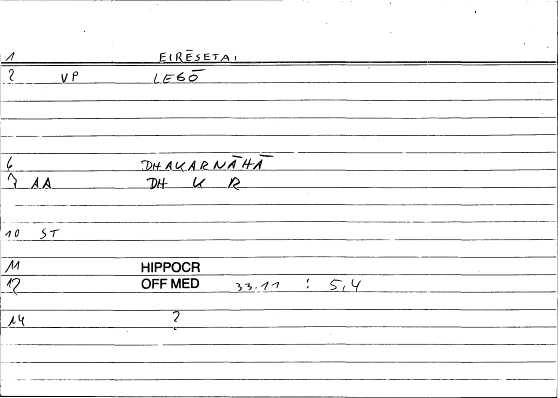 1 EIRĒSETAI
2 VP LEGŌ
6 DHAKARNĀHĀ
7 AA DH K R
10 ST
11 HIPPOCR
12 OFF MED 33.11 : 5,4
14 ?